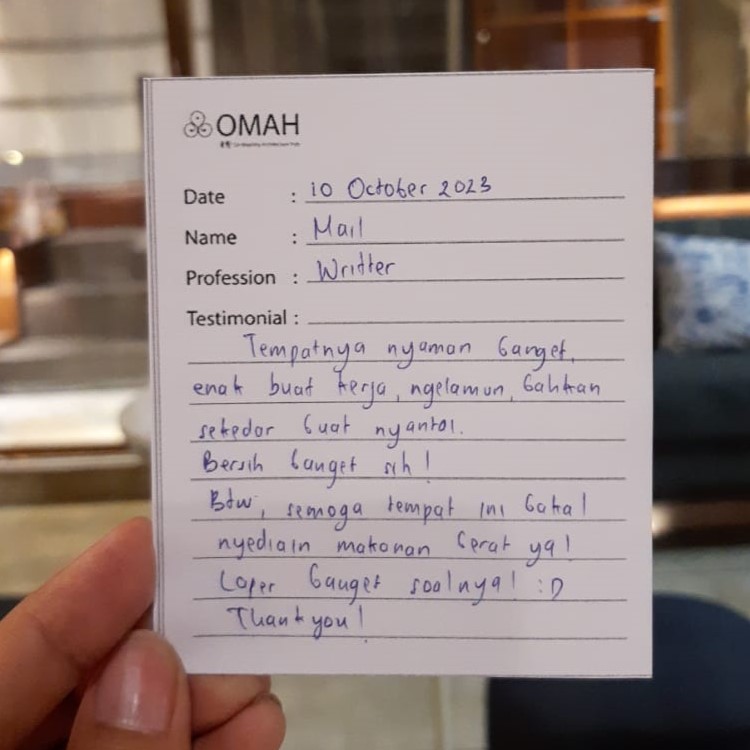 OMAH
Date : 10 October 2023
Name : Mail
Profession : Writter
Testimonial :
Tempatnya nyaman banget,
enak buat kerja, ngelamun, bahkan
sekedar buat nyantai.
Bersih banget sih!
Btw, semoga tempat ini bakal
nyediain makanan berat ya!
Laper banget soalnya! :D
Thank you!